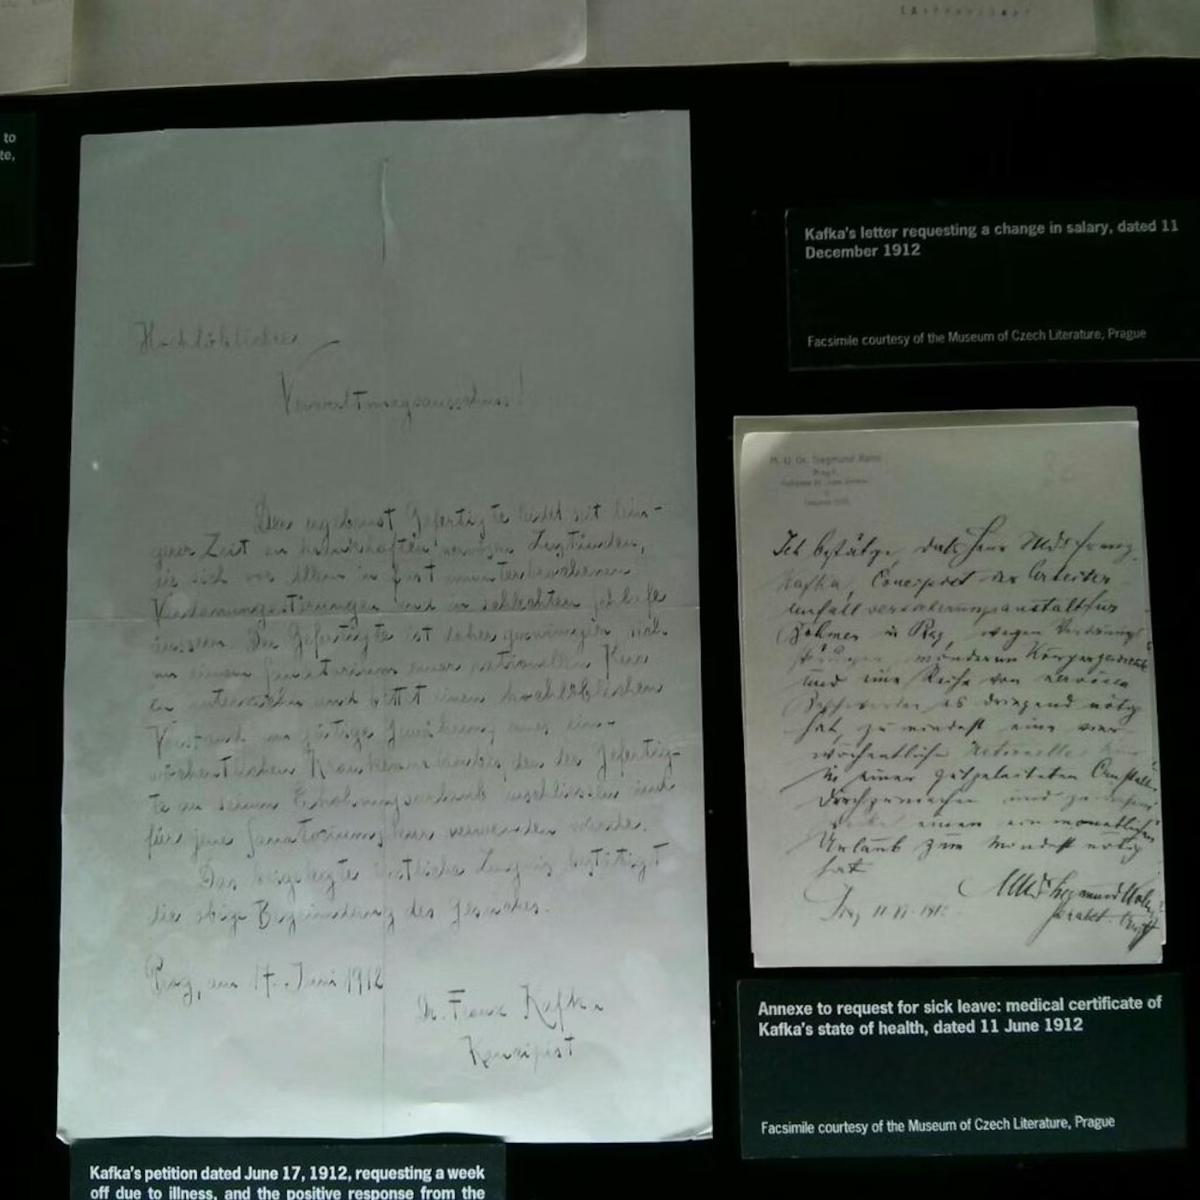 to
te,
Hochlöblicher
Verwaltungsausschuss!
Der ergebenst Gefertigte leidet seit län-
gerer Zeit an krankhaften nervösen Zuständen,
die sich vor allem in fast ununterbrochenen
Verdauungsstörungen und in schlechten Schlafe
äussern. Der Gefertigte ist daher gezwungen sich
in einem Sanatorium einer rationellen Kur
zu unterziehn und bittet einen hochlöblichen
Vorstand um gütige Gewährung eines ein-
wöchentlichen Krankenurlaubes, den der Gefertig-
te an seinen Erholungsurlaub anschliessen und
für jene Sanatoriumskur verwenden würde.
Das beigelegte ärztliche Zeugnis bestätigt
die obige Begründung des Gesuches.
Prag, am 17. Juni 1912
Dr. Franz Kafka
Konzipist
Kafka's petition dated June 17, 1912, requesting a week
off due to illness, and the positive response from the
Kafka's letter requesting a change in salary, dated 11
December 1912
Facsimile courtesy of the Museum of Czech Literature, Prague
M. U. Dr. Siegmund Kohn
Ich bestätige, dass Herr
Kafka, Concipist der Arbeiter
unfallversicherungsanstalt für
Böhmen in Prag, wegen Verdauungs
und eine Reihe von nervösen
Beschwerden es dringend nötig
hat, zu mindest eine vier
wöchentliche rationelle Kur
in einer gutgeleiteten Anstalt
durchzumachen und
einen ein monatlichen
Urlaub zum mindest nötig
hat
Prag 11 VI 1912
Annexe to request for sick leave: medical certificate of
Kafka's state of health, dated 11 June 1912
Facsimile courtesy of the Museum of Czech Literature, Prague